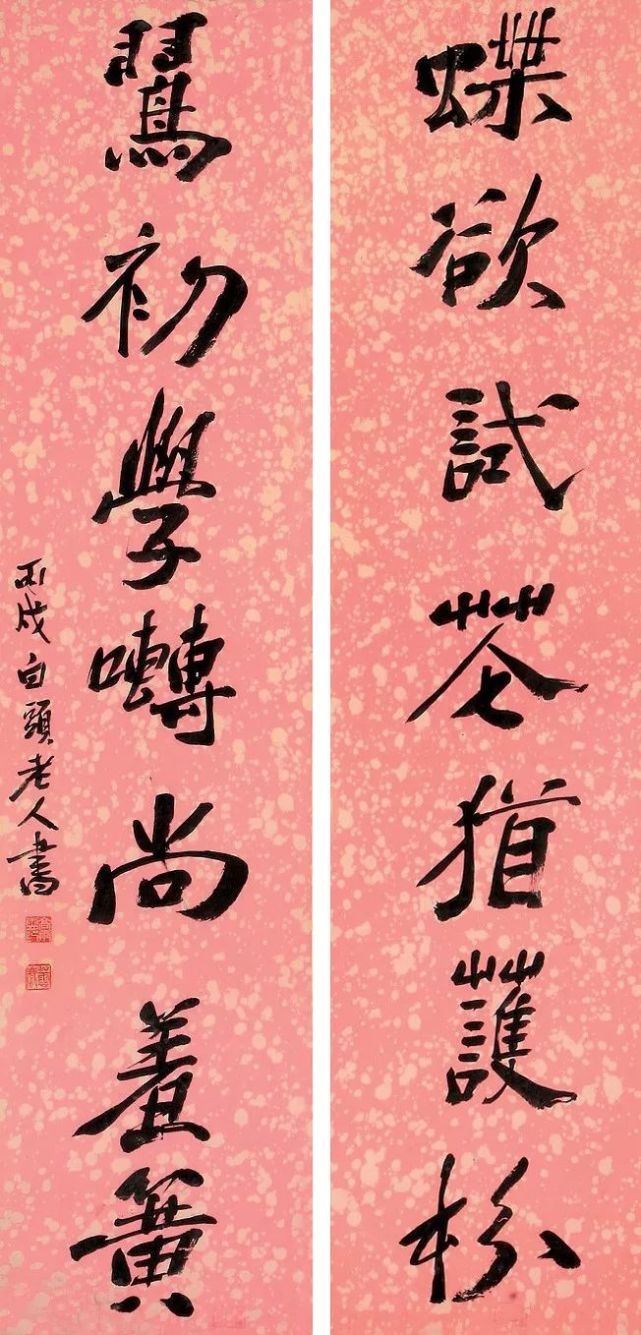 蝶欲試花猶護粉
鶯初學囀尚羞簧
丙戌白頭老人書